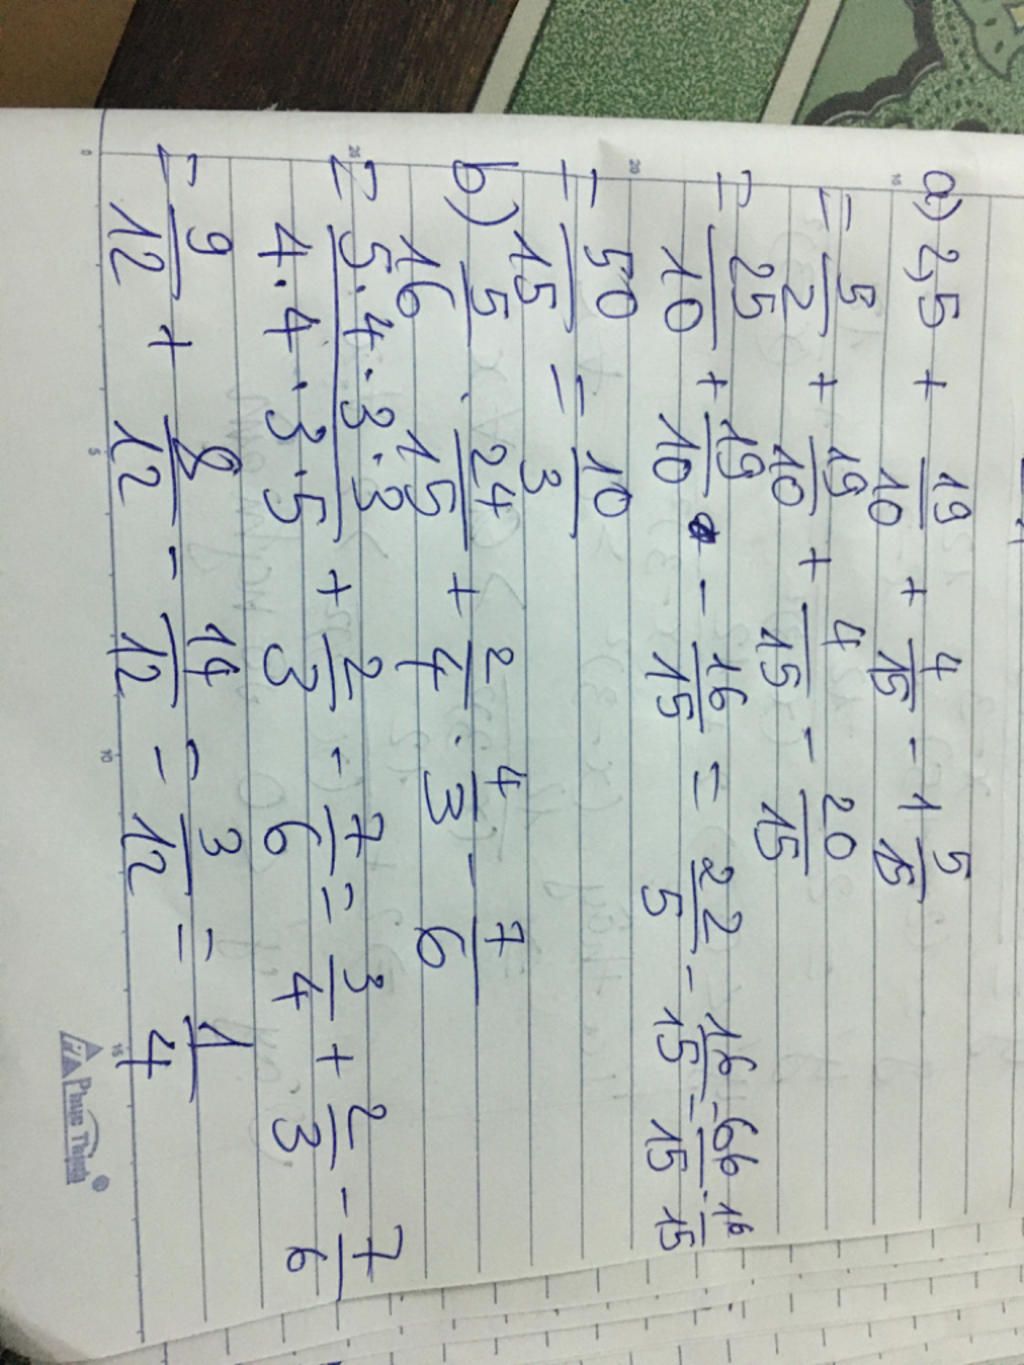 a) 2,5 + 19/10 + 4/15 - 1 5/15
= 5/2 + 19/10 + 4/15 - 20/15
= 25/10 + 19/10 - 16/15 = 22/5 - 16/15 = 66/15 - 16/15
= 50/15 = 10/3
b) 5/16 . 24/15 + 2/4 . 4/3 - 7/6
= 5.4.3.3/4.4.3.5 + 2/3 - 7/6 = 3/4 + 2/3 - 7/6
= 9/12 + 8/12 - 14/12 = 3/12 = 1/4
0 5 10 15
20
25
Phuc Thinh